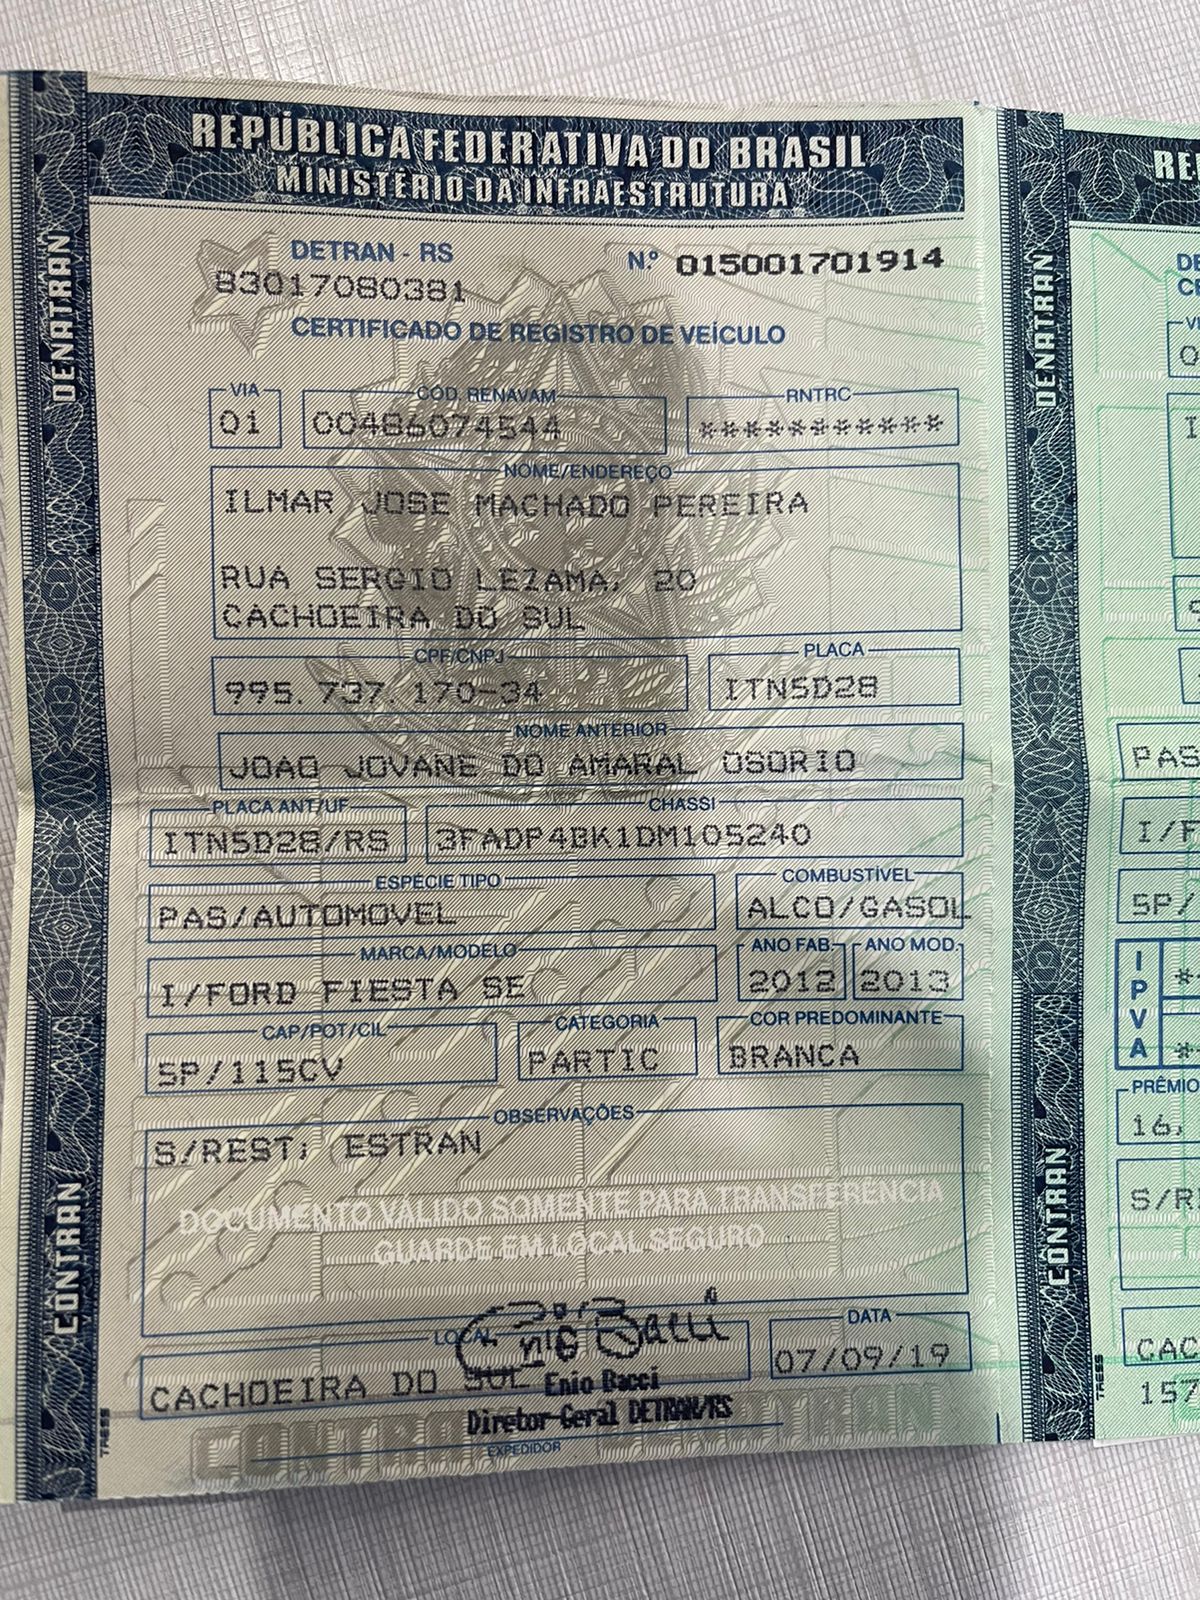 REPÚBLICA FEDERATIVA DO BRASIL
MINISTÉRIO DA INFRAESTRUTURA
DENATRAN
DETRAN - RS
Nº 015001701914
83017080381
CERTIFICADO DE REGISTRO DE VEÍCULO
VIA
CÓD. RENAVAM
RNTRC
01
00486074544
***********
NOME/ENDEREÇO
ILMAR JOSE MACHADO PEREIRA
RUA SERGIO LEZAMA, 20
CACHOEIRA DO SUL
CPF/CNPJ
PLACA
995.737.170-34
ITN5D28
NOME ANTERIOR
JOAO JOVANE DO AMARAL OSORIO
PLACA ANT/UF
CHASSI
ITN5D28/RS
3FADP4BK1DM105240
ESPÉCIE TIPO
COMBUSTÍVEL
PAS/AUTOMOVEL
ALCO/GASOL
MARCA/MODELO
ANO FAB.
ANO MOD.
I/FORD FIESTA SE
2012
2013
CAP/POT/CIL
CATEGORIA
COR PREDOMINANTE
5P/115CV
PARTIC
BRANCA
OBSERVAÇÕES
S/REST; ESTRAN
DOCUMENTO VÁLIDO SOMENTE PARA TRANSFERÊNCIA
GUARDE EM LOCAL SEGURO
CONTRAN
LOCAL
DATA
CACHOEIRA DO SUL
07/09/19
Enio Bacci
Diretor-Geral DETRAN/RS
EXPEDIDOR
DENATRAN
CONTRAN
PAS
I/F
5P/
IPVA
PRÊMIO
16,
S/R
CAC
157